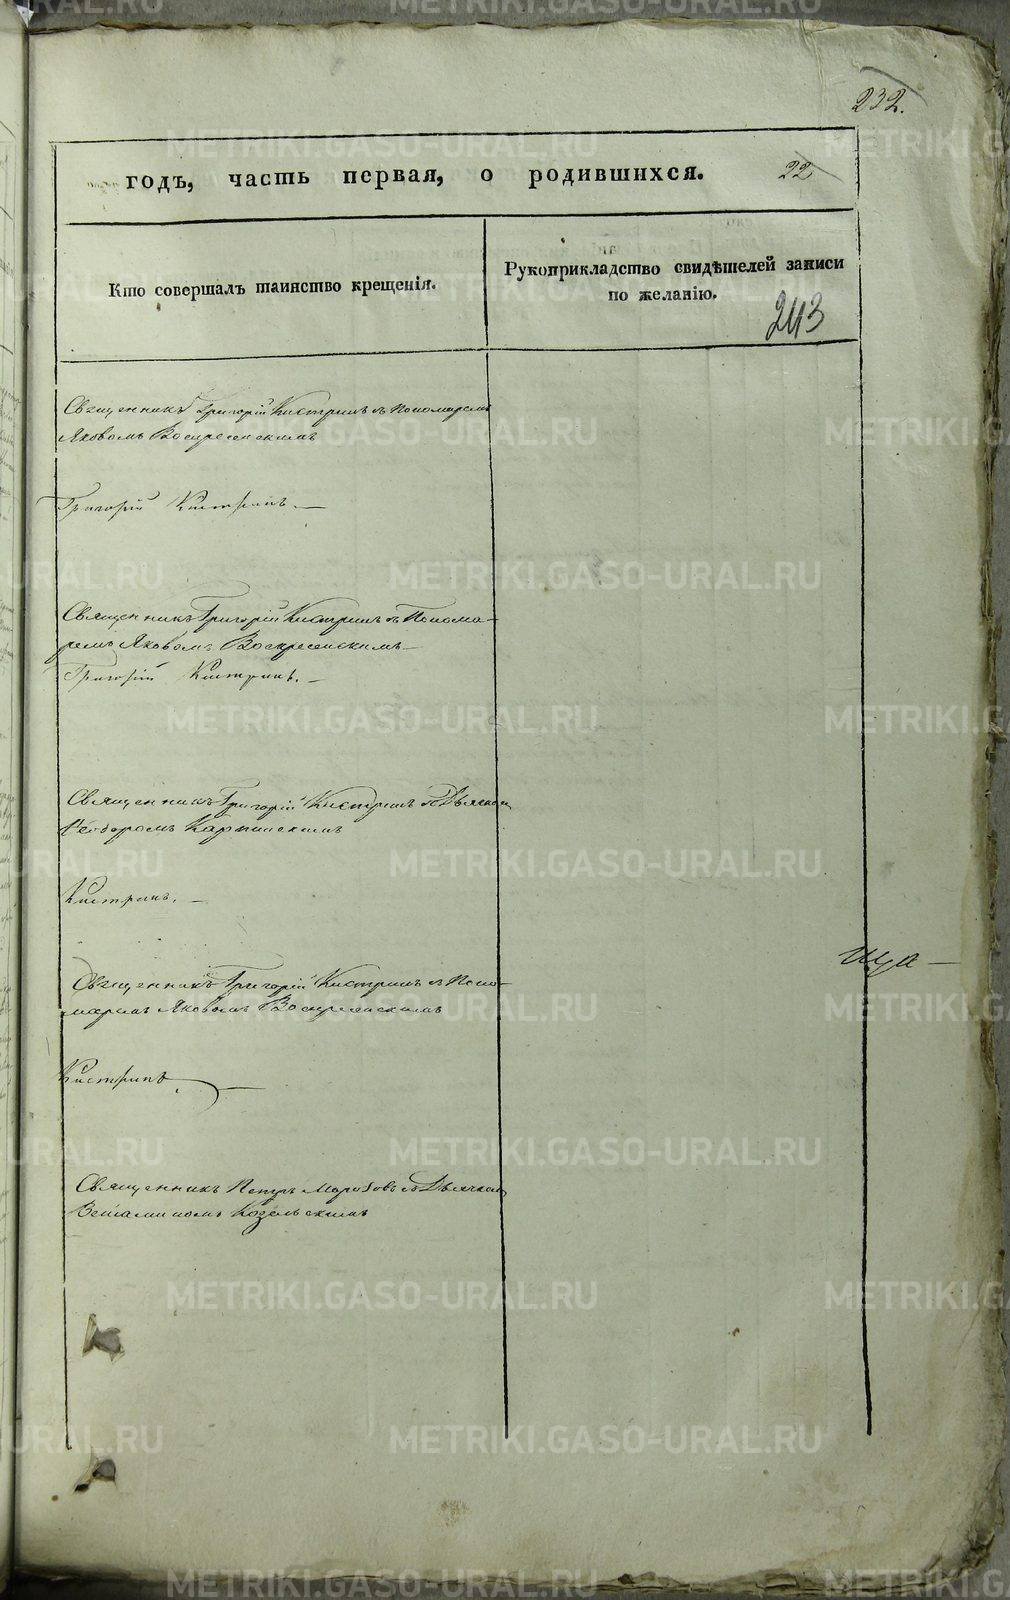 232.
годъ, часть первая, о родившихся. 22
Кто совершалъ таинство крещенія.
Рукоприкладство свидѣтелей записи
по желанію.
243
Священникъ Григорій Кистринъ съ Пономаремъ
Яковомъ Воскресенскимъ
Григорій Кистринъ. —
Священникъ Григорій Кистринъ съ Понома-
ремъ Яковомъ Воскресенскимъ —
Григорій Кистринъ. —
Священникъ Григорій Кистринъ съ Дьячком
Ѳеодоромъ Карпинскимъ
Кистринъ. —
Священникъ Григорій Кистринъ съ Поно-
маремъ Яковомъ Воскресенскимъ
Кистринъ. —
Священникъ Петръ Морозовъ съ Дьячком
Веніаминомъ Козельскимъ
METRIKI.GASO-URAL.RU